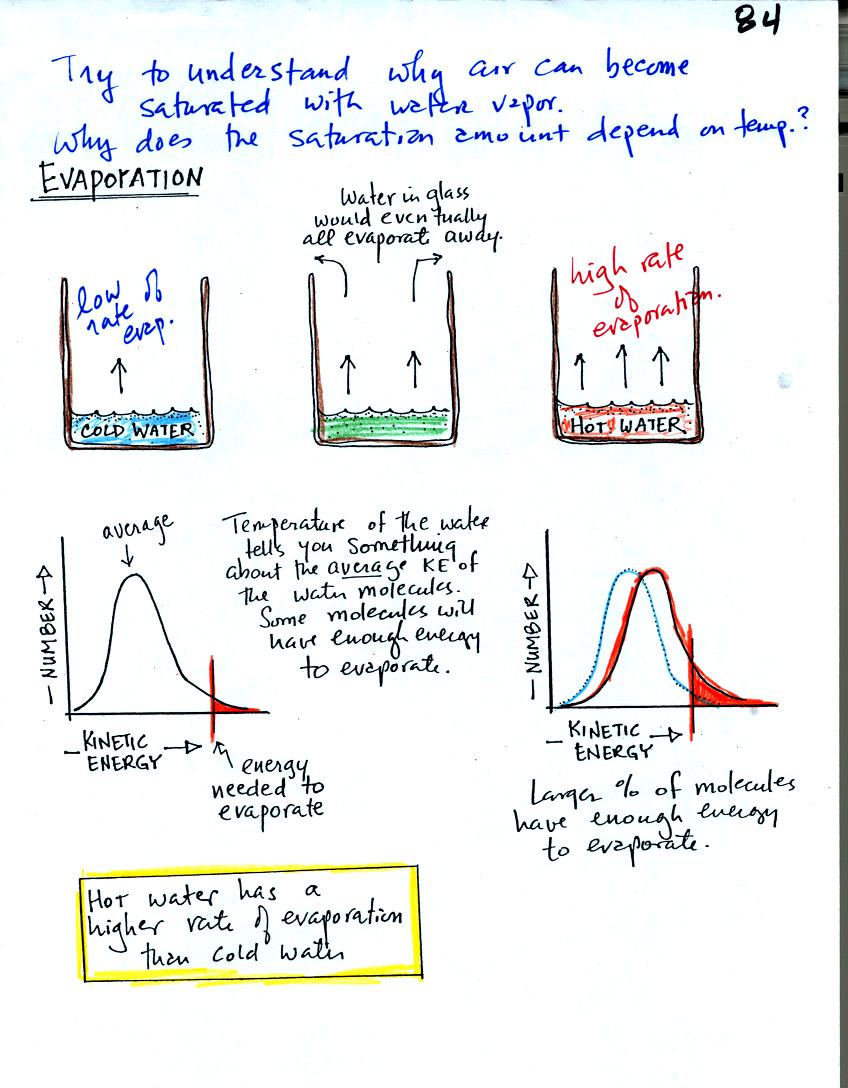 84
Try to understand why air can become
saturated with water vapor.
Why does the saturation amount depend on temp.?
EVAPORATION
Water in glass
would eventually
all evaporate away.
low
rate of
evap.
high rate
of
evaporation.
COLD WATER
HOT WATER
average
Temperature of the water
tells you something
about the average KE of
the water molecules.
Some molecules will
have enough energy
to evaporate.
NUMBER
KINETIC
ENERGY
energy
needed to
evaporate
NUMBER
KINETIC
ENERGY
Larger % of molecules
have enough energy
to evaporate.
Hot water has a
higher rate of evaporation
than cold water